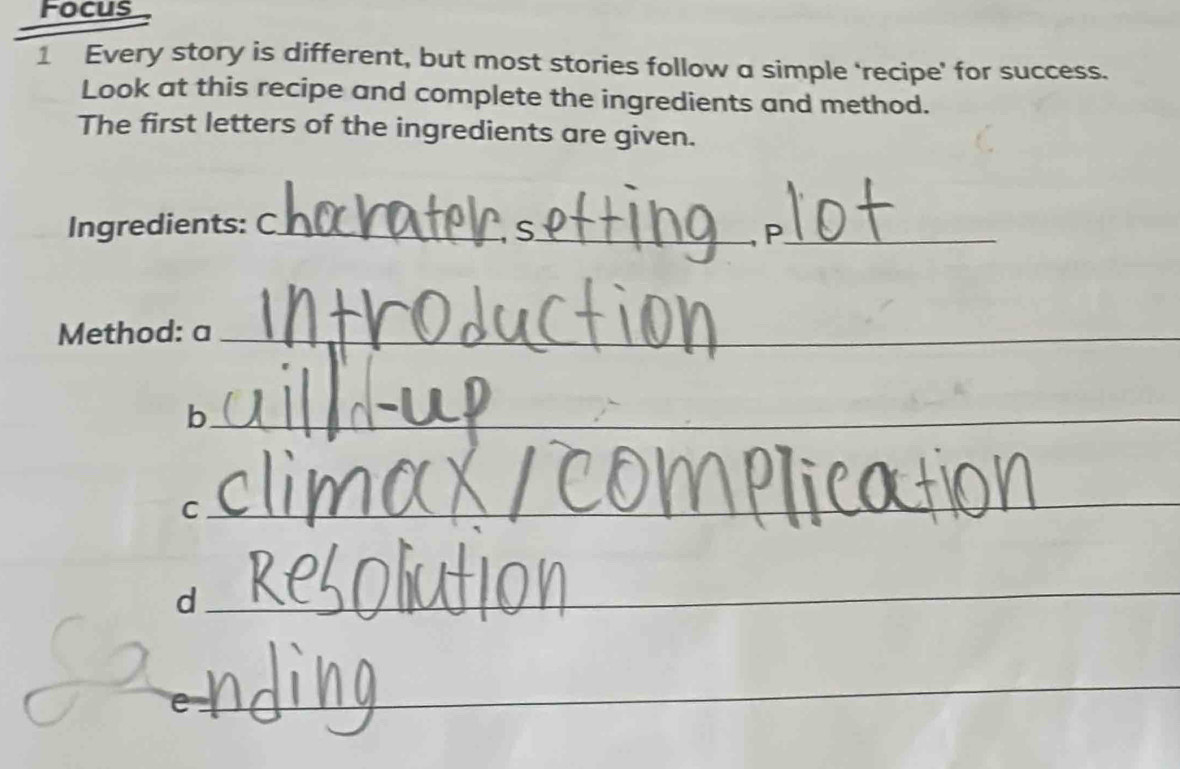 Focus
1 Every story is different, but most stories follow a simple ‘recipe’ for success.
Look at this recipe and complete the ingredients and method.
The first letters of the ingredients are given.
Ingredients: Charater, setting, Plot
Method: a Introduction
b uilld-up
c climax / complication
d Resolution
e nding